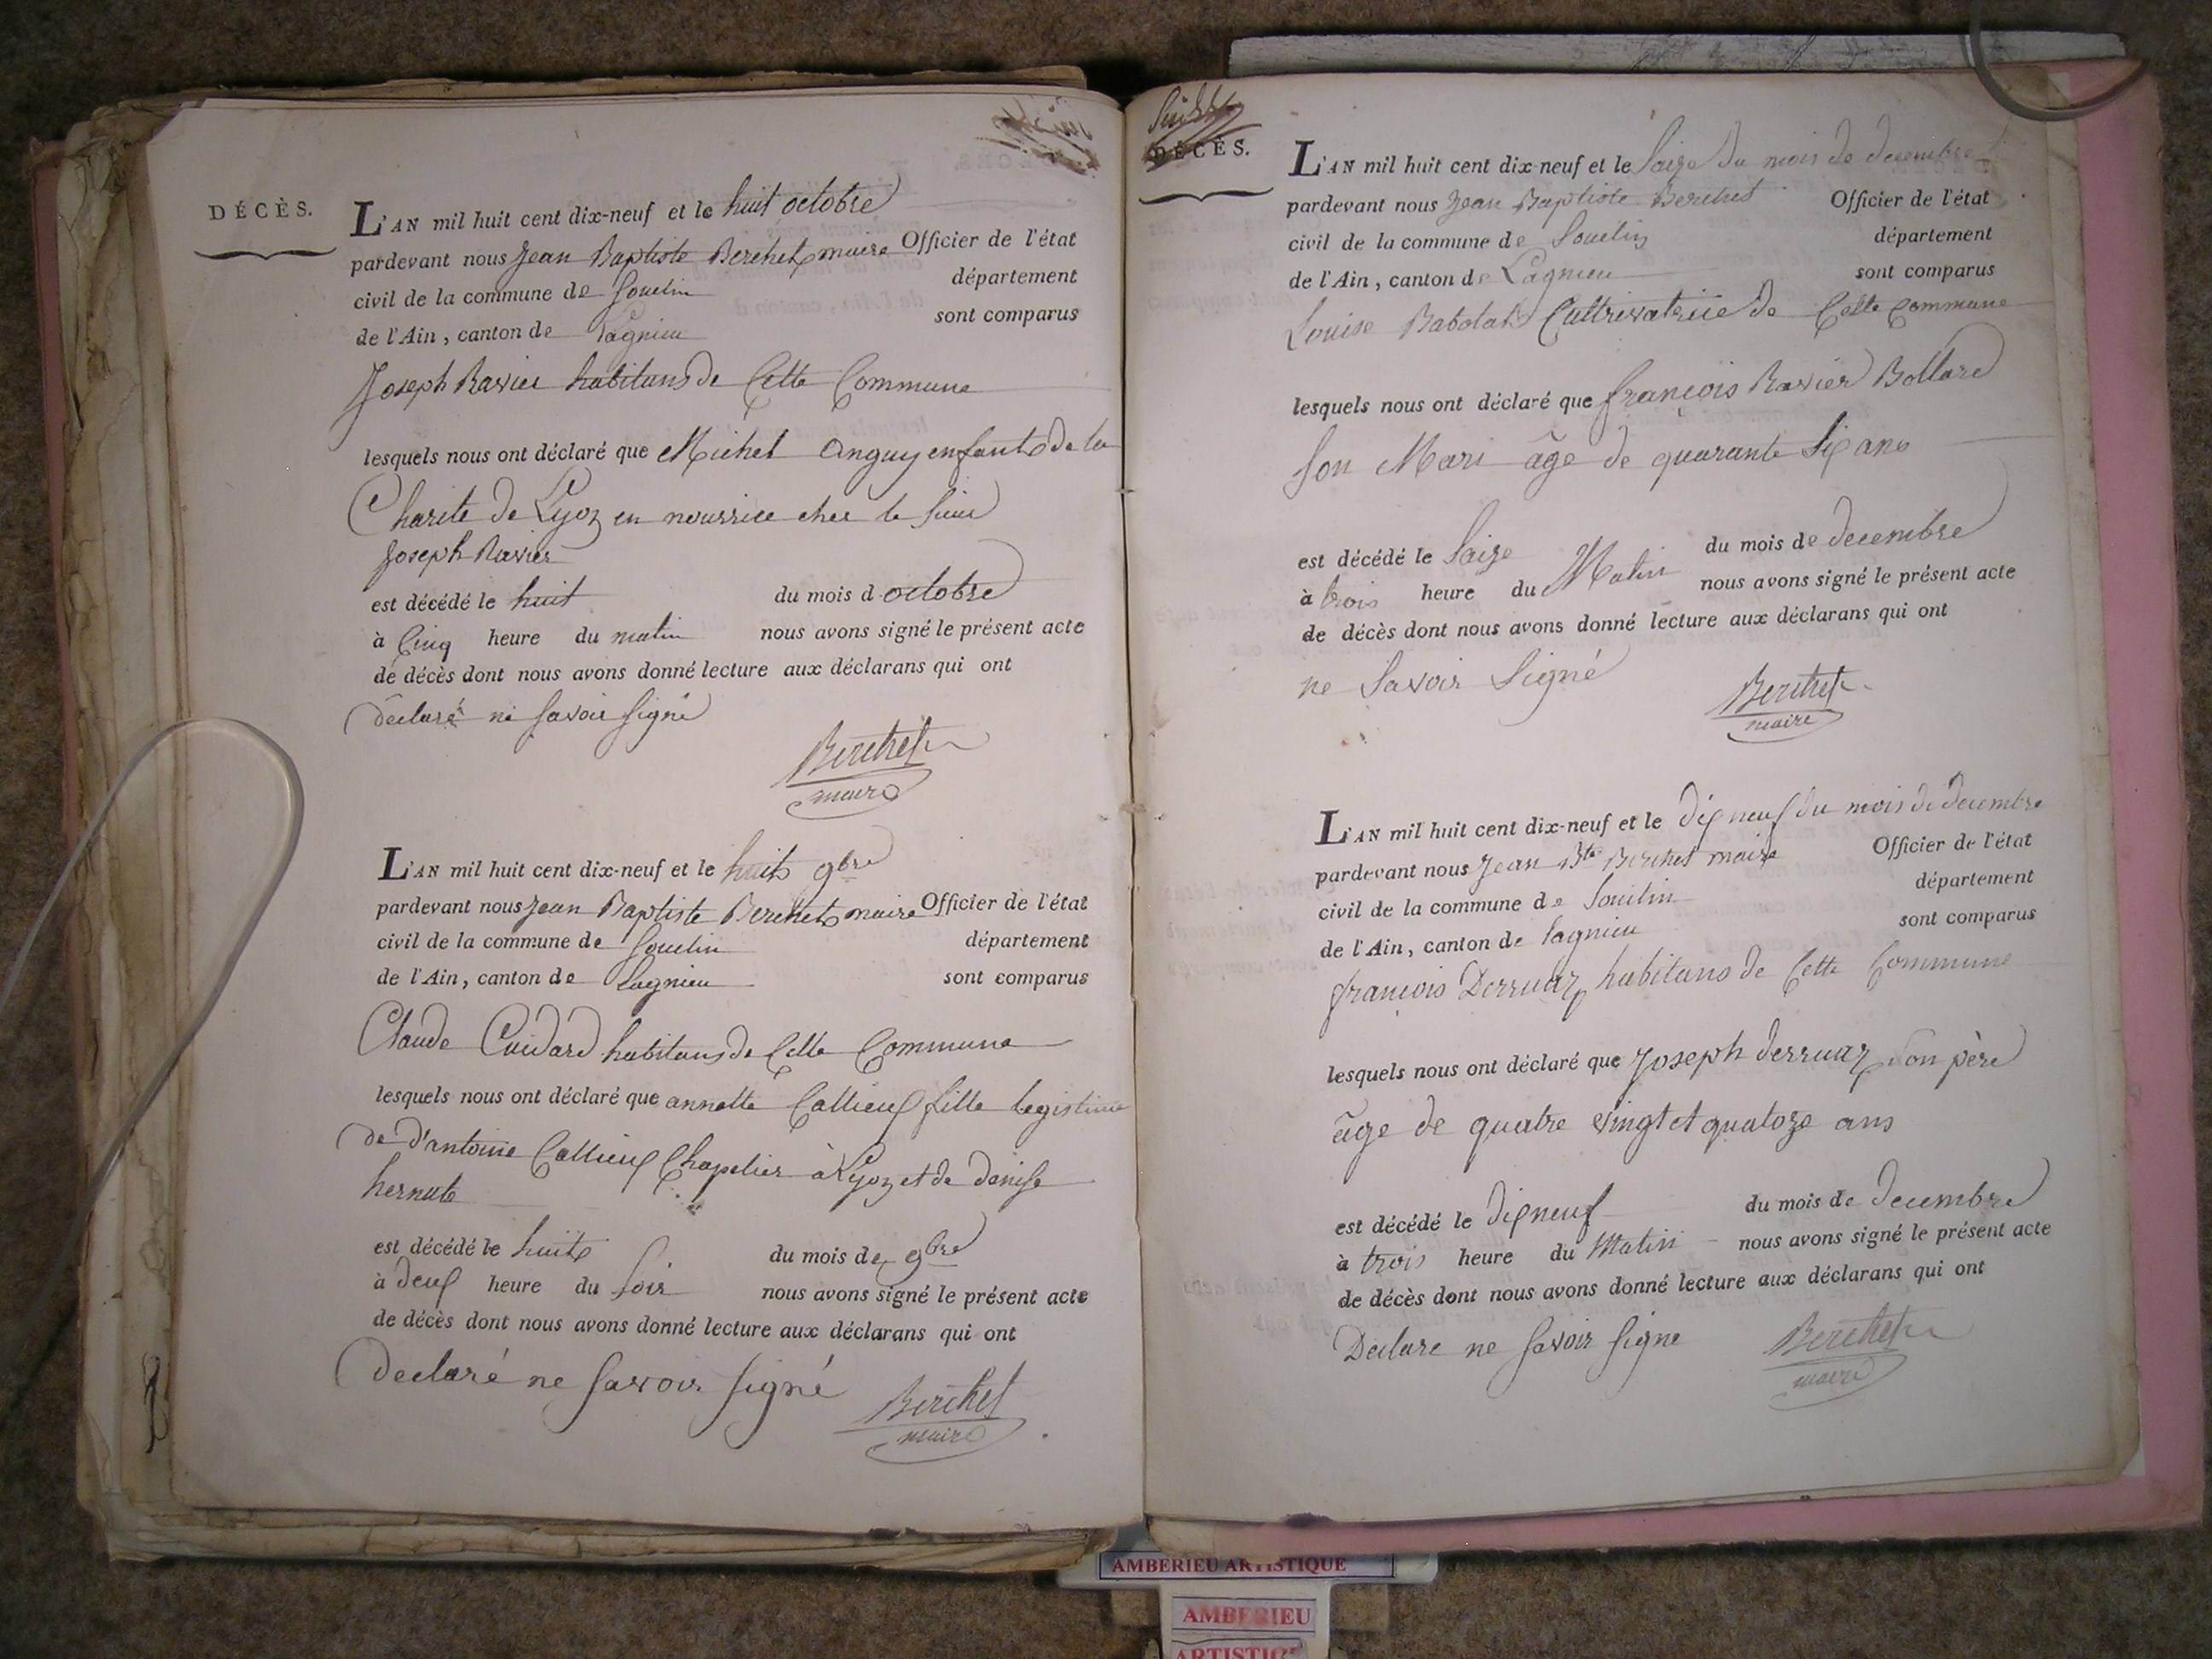 DÉCÈS.
L'AN mil huit cent dix-neuf et le huit octobre
pardevant nous Jean Baptiste Berthet maire Officier de l'état
civil de la commune de Souclin département
de l'Ain, canton de Lagnieu sont comparus
Joseph Ravier habitans de Cette Commune
lesquels nous ont déclaré que Michel anguy enfant de la
Charite de Lyon en nourrice chez le sieur
Joseph Ravier
est décédé le huit du mois d octobre
à Cinq heure du matin nous avons signé le présent acte
de décès dont nous avons donné lecture aux déclarans qui ont
déclaré ne savoir signé
Berthet
maire
L'AN mil huit cent dix-neuf et le huit 9bre
pardevant nous Jean Baptiste Berthet maire Officier de l'état
civil de la commune de Souclin département
de l'Ain, canton de Lagnieu sont comparus
Claude Cuidard habitans de Cette Commune
lesquels nous ont déclaré que annette Callieux fille legistime
de d'antoine Callieux Chapelier à Lyon et de denise
hernute
est décédé le huit du mois de 9bre
à deux heure du soir nous avons signé le présent acte
de décès dont nous avons donné lecture aux déclarans qui ont
declaré ne savoir signé
Berthet
maire
DÉCÈS.
L'AN mil huit cent dix-neuf et le saize du mois de decembre
pardevant nous Jean Baptiste Berthet Officier de l'état
civil de la commune de Souclin département
de l'Ain, canton de Lagnieu sont comparus
Louise Babolat Cultrivatrice de Cette Commune
lesquels nous ont déclaré que françois Ravier Bollard
son Mari âge de quarante six ans
est décédé le saize du mois de decembre
à trois heure du Matin nous avons signé le présent acte
de décès dont nous avons donné lecture aux déclarans qui ont
ne savoir signé
Berthet
maire
L'AN mil huit cent dix-neuf et le dix neuf du mois de decembre
pardevant nous Jean Bte Berthet maire Officier de l'état
civil de la commune de Souclin département
de l'Ain, canton de Lagnieu sont comparus
françois Derruaz habitans de Cette Commune
lesquels nous ont déclaré que Joseph derruaz son père
âge de quatre vingt et quatoze ans
est décédé le dix neuf du mois de decembre
à trois heure du Matin nous avons signé le présent acte
de décès dont nous avons donné lecture aux déclarans qui ont
Declare ne savoir signe
Berthet
maire
AMBERIEU ARTISTIQUE
AMBERIEU